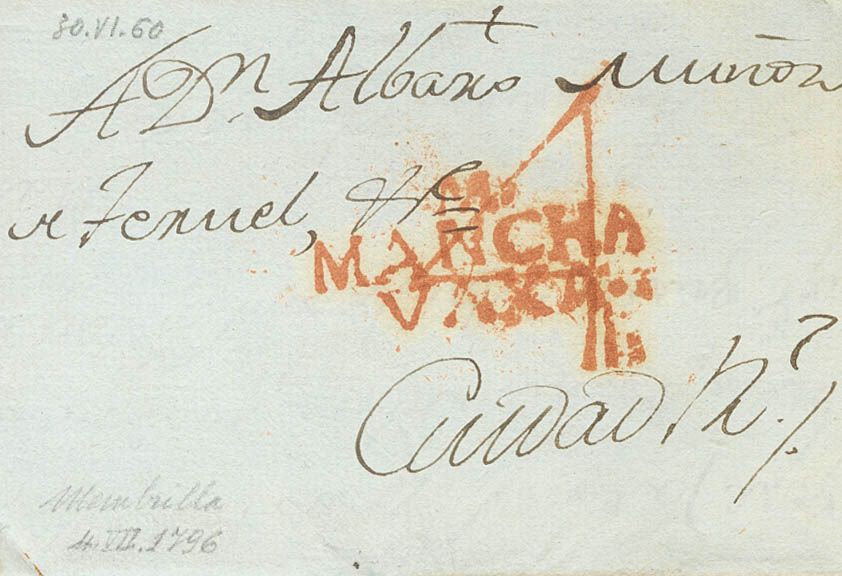 30.VI.60
A Dn. Albaro Muñoz
Teruel, &c
MANCHA
VAXA
Ciudad Rl.
Membrilla
4.VII.1796